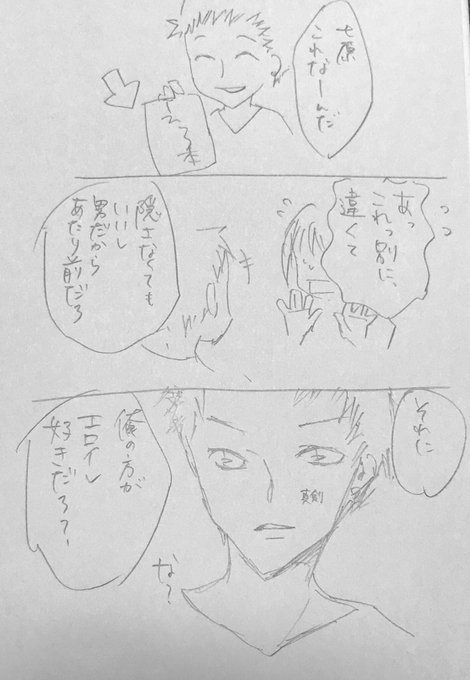 七原
これなーんだ
えろ本
あっ
これっ別に、
違くて
隠さなくても
いいし
男だから
あたり前だろ
それに
真剣
俺の方が
エロイし
好きだろ?
な?